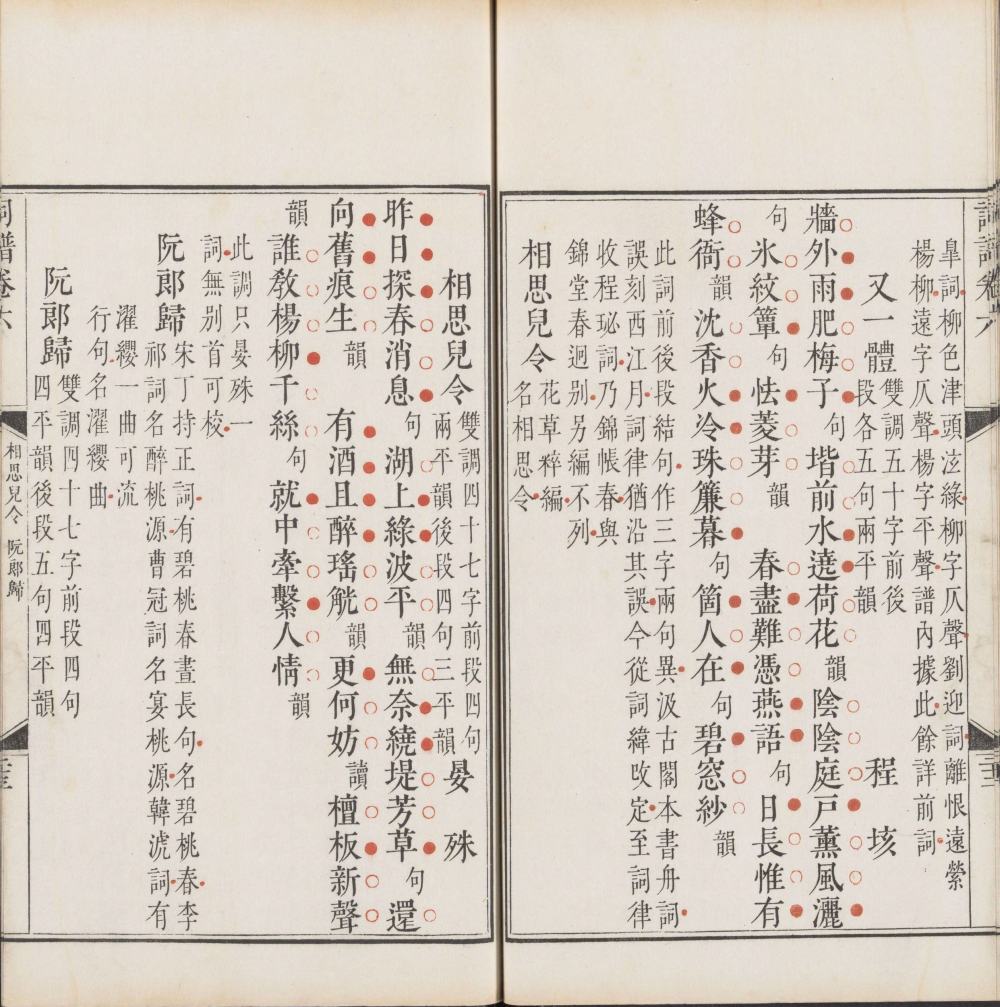 皐詞柳色津頭泫綠柳字仄聲劉迎詞離恨遠縈
楊柳遠字仄聲楊字平聲譜內據此餘詳前詞
又一體 雙調五十字前後 程垓
段各五句兩平韻
牆外雨肥梅子句堦前水遶荷花韻陰陰庭戶薰風灑
句氷紋簟句怯菱芽韻 春盡難憑燕語句日長惟有
蜂衙韻沈香火冷珠簾暮句箇人在句碧窓紗韻
此詞前後段結句作三字兩句異汲古閣本書舟詞
誤刻西江月詞律猶沿其誤今從詞緯攺定至詞律
收程珌詞乃錦帳春與
錦堂春迥别另編不列
相思兒令 花草粹編
名相思令
相思兒令 雙調四十七字前段四句 晏殊
兩平韻後段四句三平韻
昨日探春消息句湖上綠波平韻無奈繞堤芳草句還
向舊痕生韻 有酒且醉瑤觥韻更何妨讀檀板新聲
韻誰敎楊柳千絲句就中牽繫人情韻
此調只晏殊一
詞無别首可校
阮郎歸 宋丁持正詞有碧桃春晝長句名碧桃春李
祁詞名醉桃源曹冠詞名宴桃源韓淲詞有
濯纓一曲可流
行句名濯纓曲
阮郎歸 雙調四十七字前段四句
四平韻後段五句四平韻
詞譜卷六
相思兒令 阮郎歸